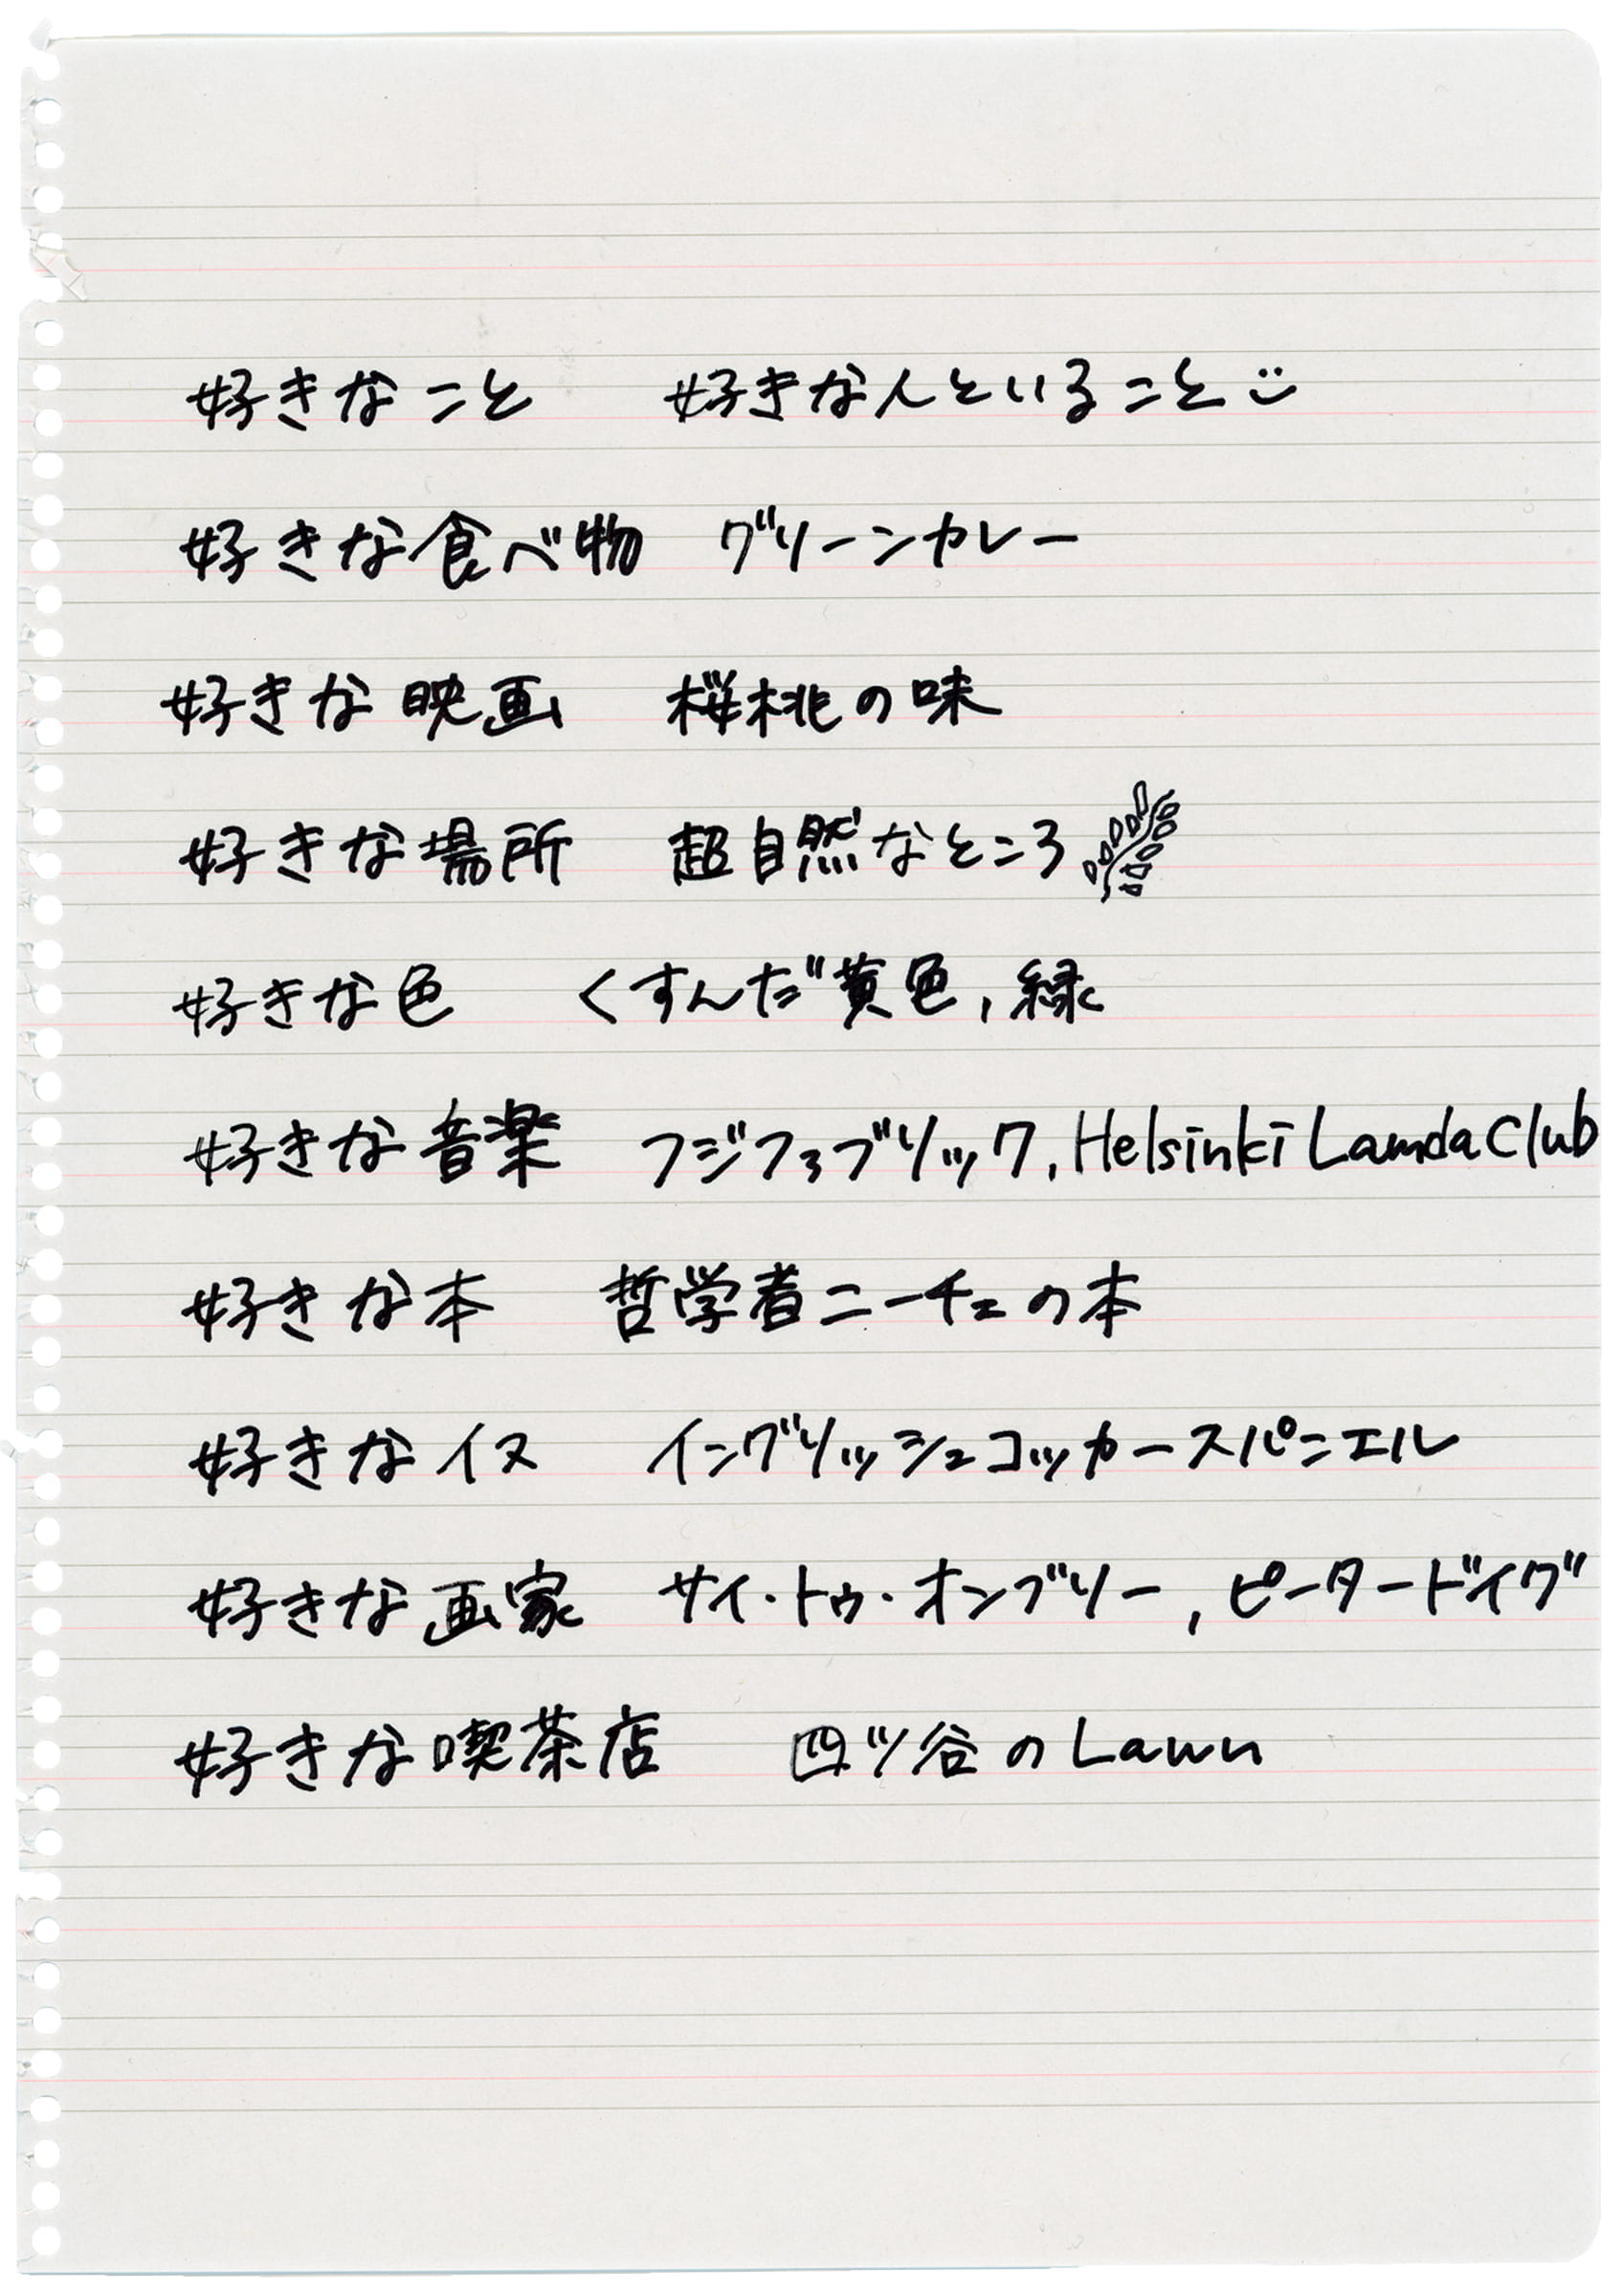 好きなこと 好きな人といること
好きな食べ物 グリーンカレー
好きな映画 桜桃の味
好きな場所 超自然なところ
好きな色 くすんだ黄色,緑
好きな音楽 フジファブリック,Helsinki Lamda Club
好きな本 哲学者ニーチェの本
好きなイヌ イングリッシュコッカースパニエル
好きな画家 サイ・トゥ・オンブリー,ピータードイグ
好きな喫茶店 四ツ谷のLawn